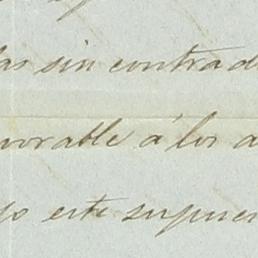 las sin contrad
vorable á los a
jo este supues